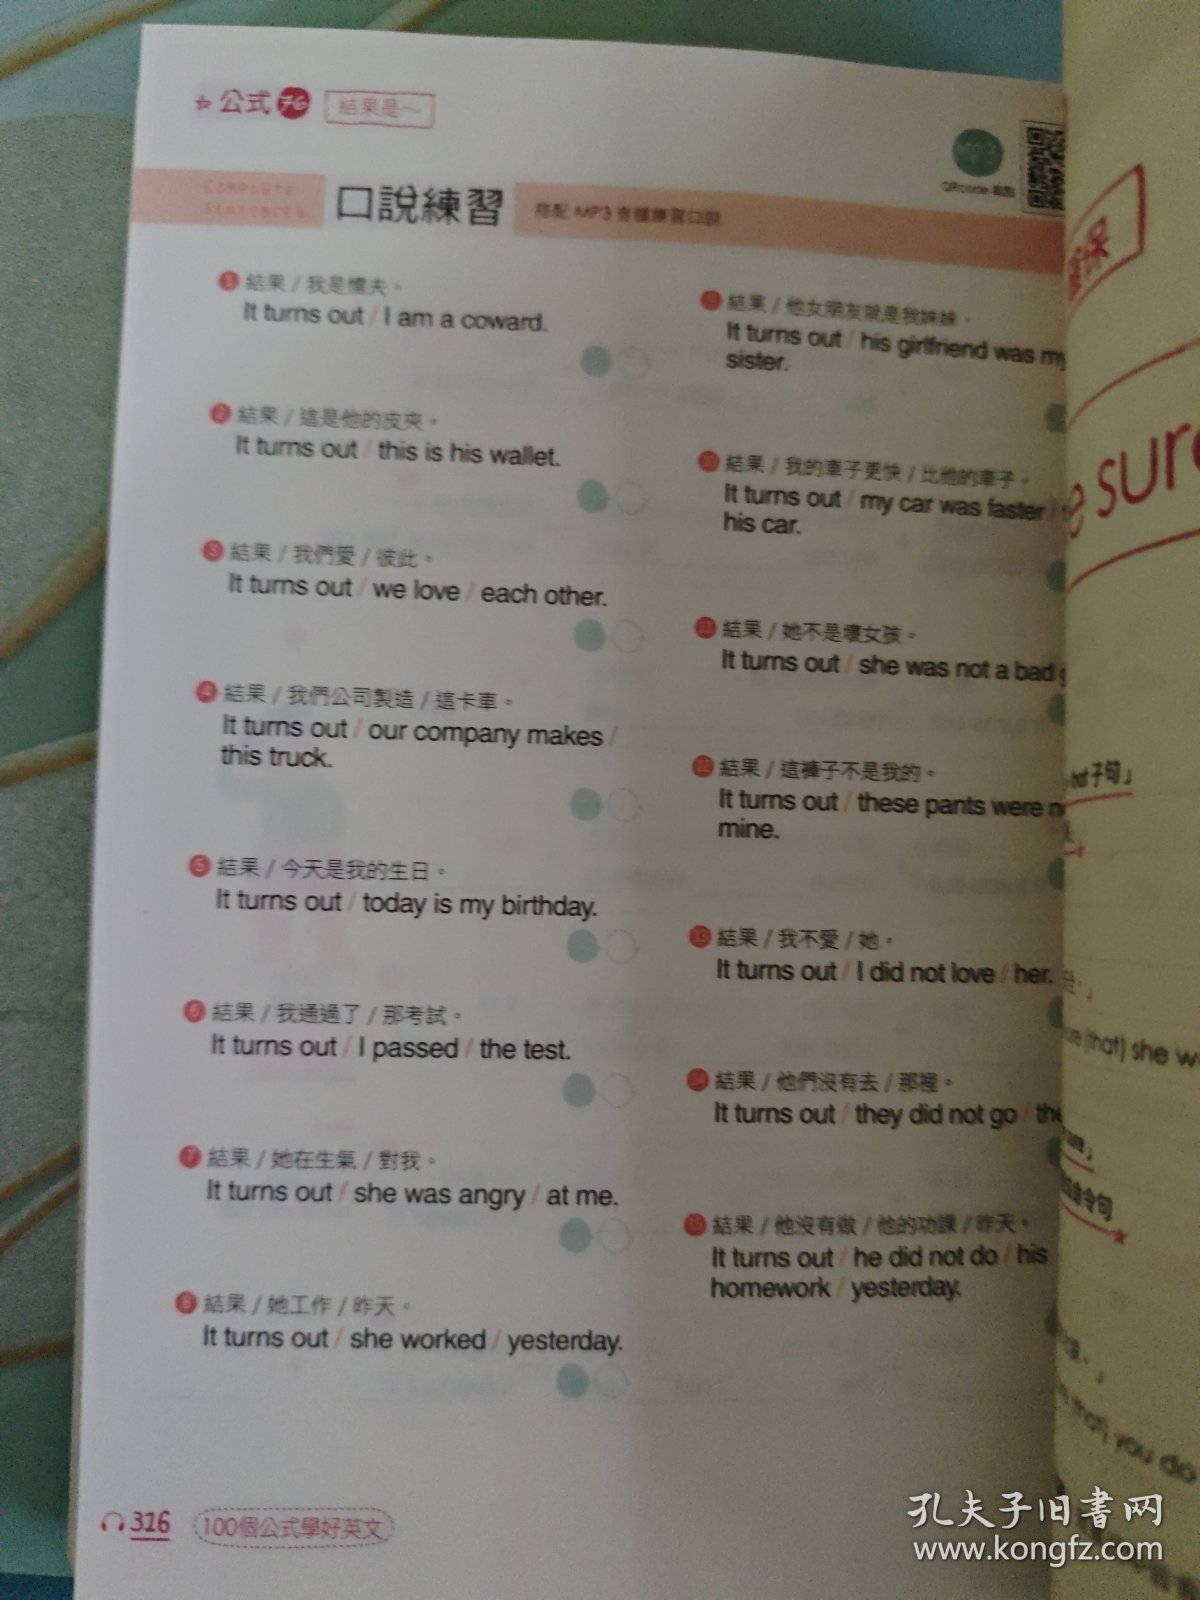 ☆ 公式 76 結果是～
COMPLETE
SENTENCES
口說練習
搭配 MP3 會樓練習口說
QRcode
1 結果 / 我是懦夫。
It turns out / I am a coward.
2 結果 / 這是他的皮夾。
It turns out / this is his wallet.
3 結果 / 我們愛 / 彼此。
It turns out / we love / each other.
4 結果 / 我們公司製造 / 這卡車。
It turns out / our company makes /
this truck.
5 結果 / 今天是我的生日。
It turns out / today is my birthday.
6 結果 / 我通過了 / 那考試。
It turns out / I passed / the test.
7 結果 / 她在生氣 / 對我。
It turns out / she was angry / at me.
8 結果 / 她工作 / 昨天。
It turns out / she worked / yesterday.
9 結果 / 他女朋友就是我妹妹。
It turns out / his girlfriend was my
sister.
10 結果 / 我的車子更快 / 比他的車子。
It turns out / my car was faster /
his car.
11 結果 / 她不是壞女孩。
It turns out / she was not a bad
12 結果 / 這褲子不是我的。
It turns out / these pants were
mine.
13 結果 / 我不愛 / 她。
It turns out / I did not love / her.
14 結果 / 他們沒有去 / 那裡。
It turns out / they did not go / the
15 結果 / 他沒有做 / 他的功課 / 昨天。
It turns out / he did not do / his
homework / yesterday.
316 100個公式學好英文
保
e sure
hat 子句」
(that) she w
命令句
that) you do
孔夫子旧书网
www.kongfz.com